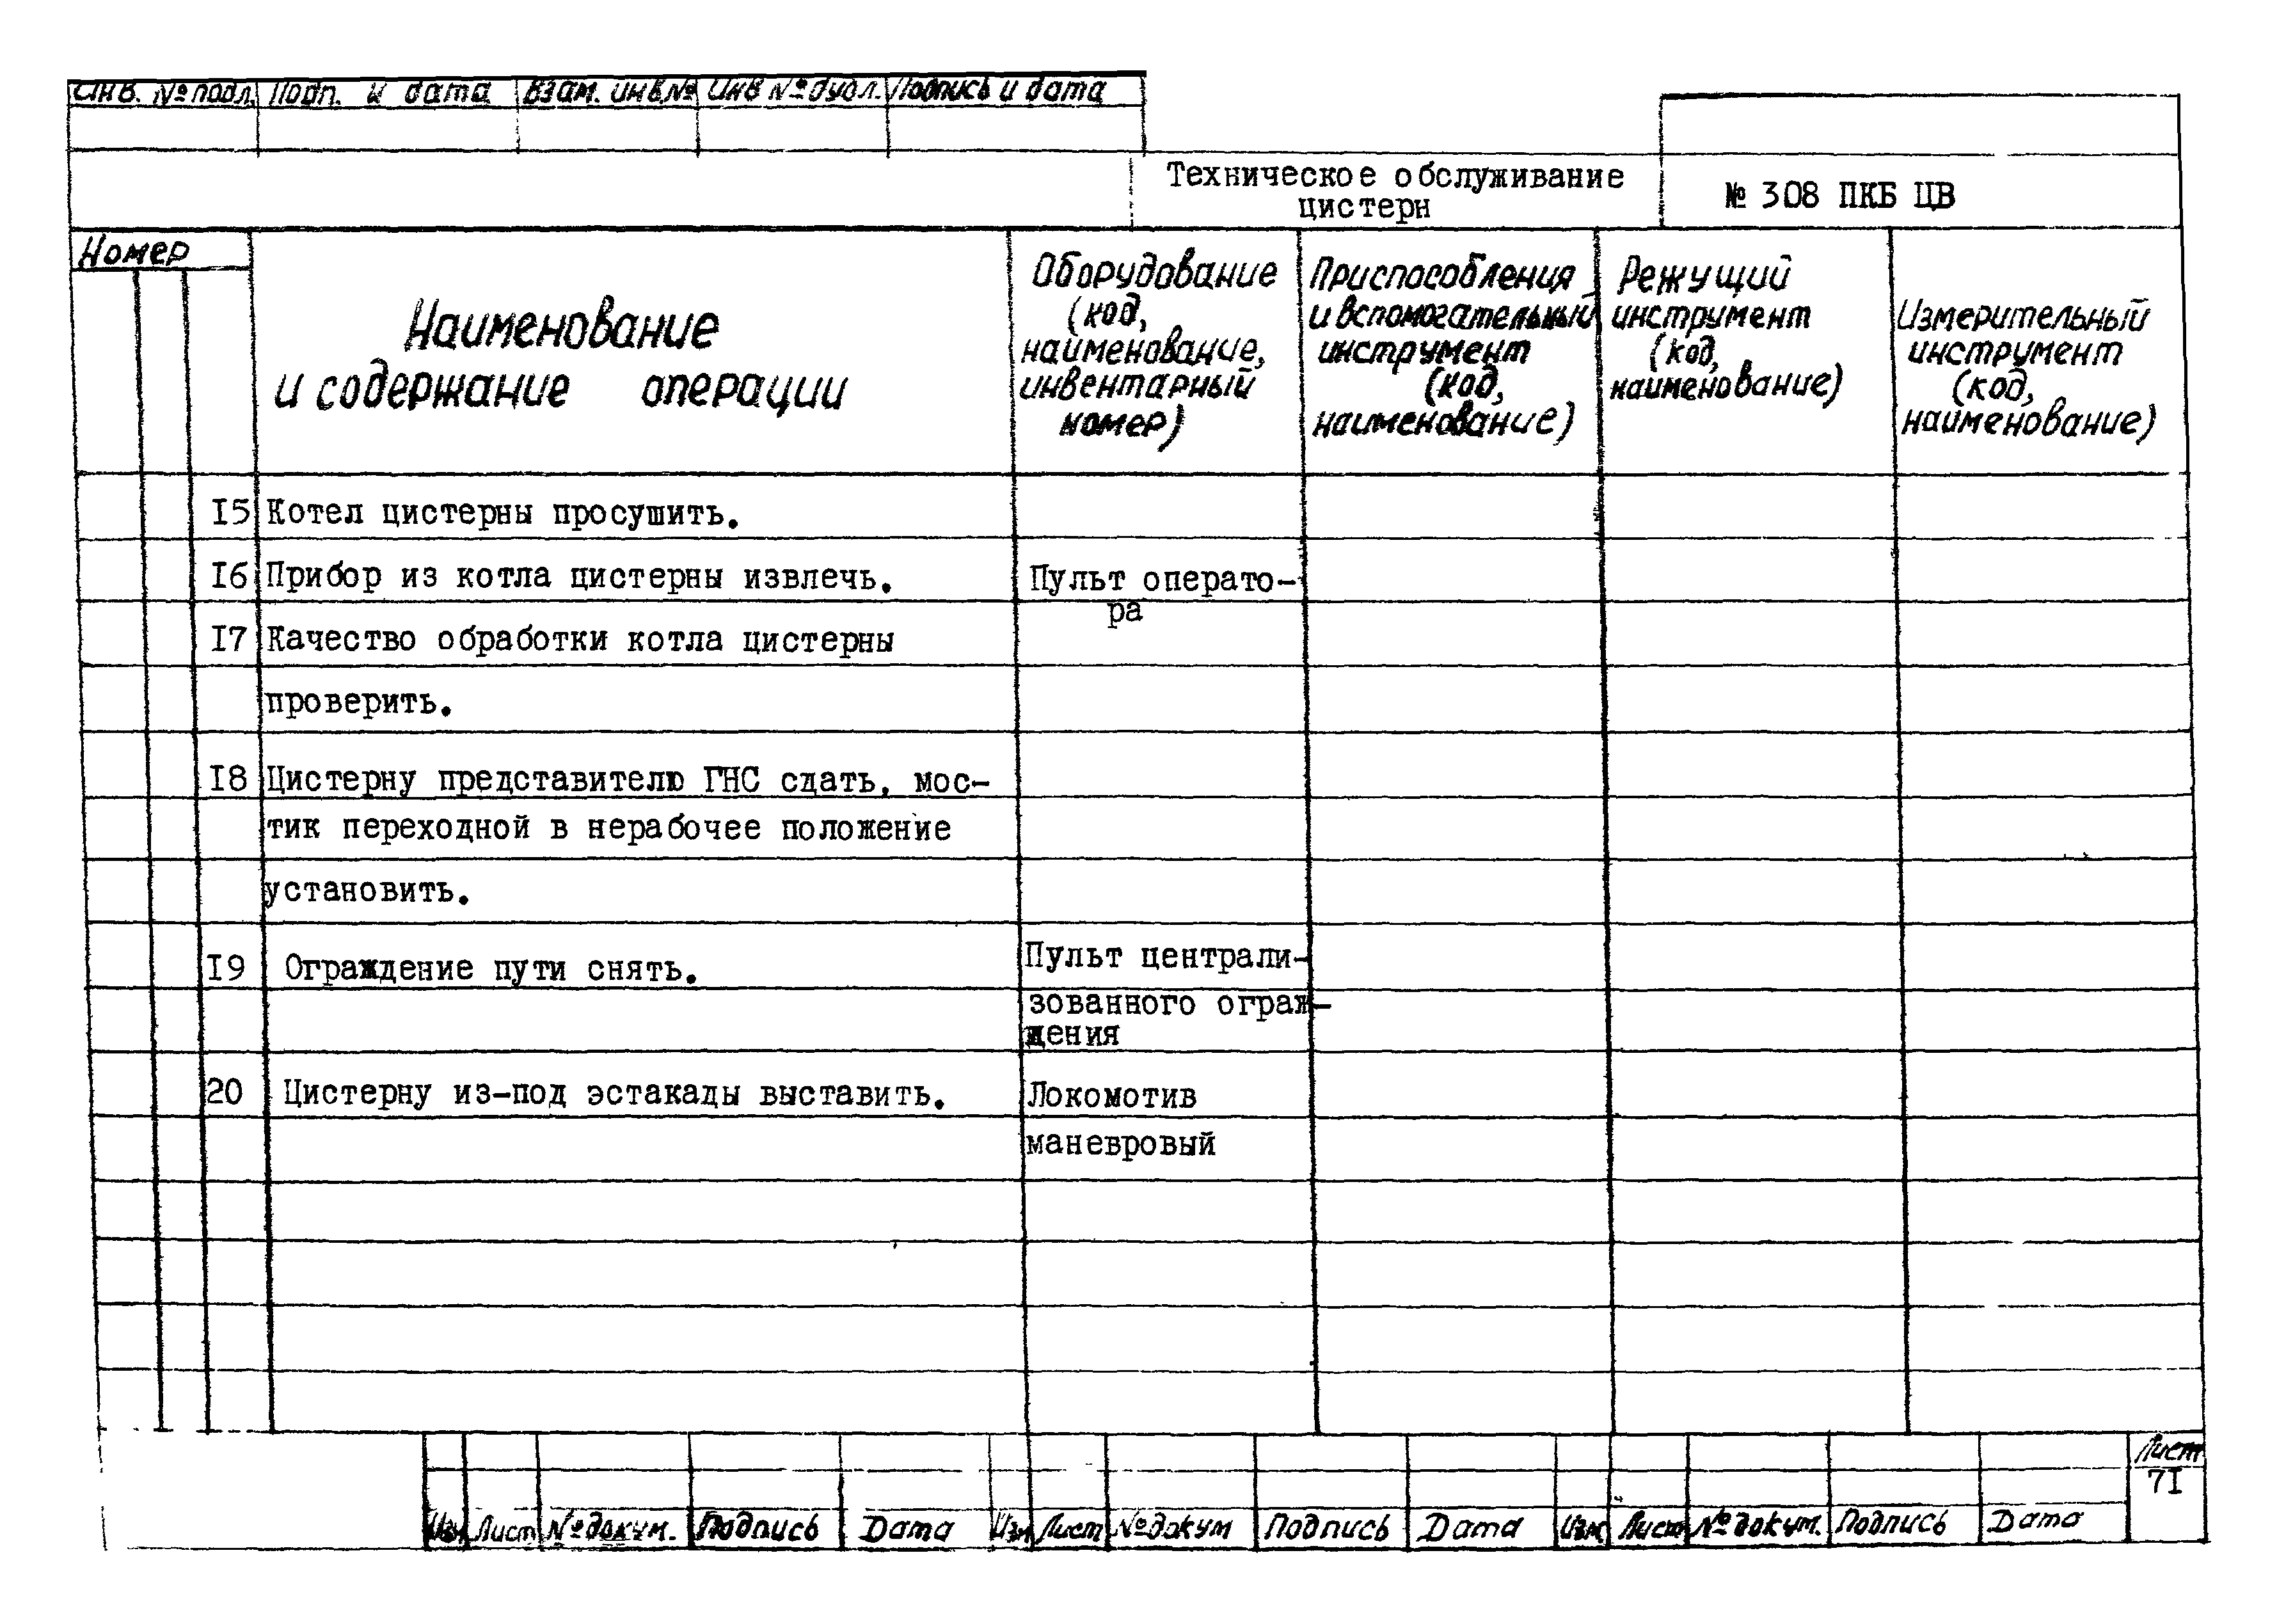 Инв. № подл. Подп. и дата Взам. инв. № Инв № дубл. Подпись и дата
Техническое обслуживание
цистерн
№ 308 ПКБ ЦВ
Номер
Наименование
и содержание операции
Оборудование
(код,
наименование,
инвентарный
номер)
Приспособления
и вспомогательный
инструмент
(код,
наименование)
Режущий
инструмент
(код,
наименование)
Измерительный
инструмент
(код,
наименование)
I5 Котел цистерны просушить.
I6 Прибор из котла цистерны извлечь. Пульт операто-
ра
I7 Качество обработки котла цистерны
проверить.
I8 Цистерну представителю ГНС сдать, мос-
тик переходной в нерабочее положение
установить.
I9 Ограждение пути снять. Пульт централи-
зованного ограж-
дения
20 Цистерну из-под эстакады выставить. Локомотив
маневровый
Лист
7I
Изм Лист № докум. Подпись Дата Изм Лист № докум Подпись Дата Изм Лист № докум. Подпись Дата